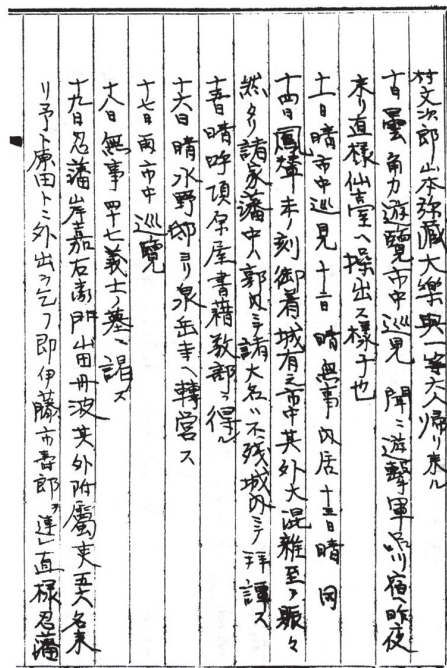 村文次郎山本弥蔵大樂典一等六人帰り来ル
十日曇角力遊覽市中巡見 聞ニ遊撃軍品川宿ヘ昨夜
来り直様仙臺ヘ操出ス様子也
十一日晴市中巡見十二日晴無事内居十三日晴同
十四日鳳輦未ノ刻御着城有之市中其外大混雑至テ賑々
然タリ諸家藩中ハ郭内ニテ諸大名ハ不残城内ニテ拜譚ス
十五日晴呼頂原屋書籍数部ヲ得ル
十六日晴水野邸ヨリ泉岳寺ヘ轉営ス
十七日雨市中巡覽
十八日無事四十七義士ノ墓ニ詣ズ
十九日名藩岸嘉右衛門山田丹波其外附屬吏五六名来
リ予ト廣田トニ外出ヲ乞フ即伊藤市壽郎ヲ連レ直様名藩